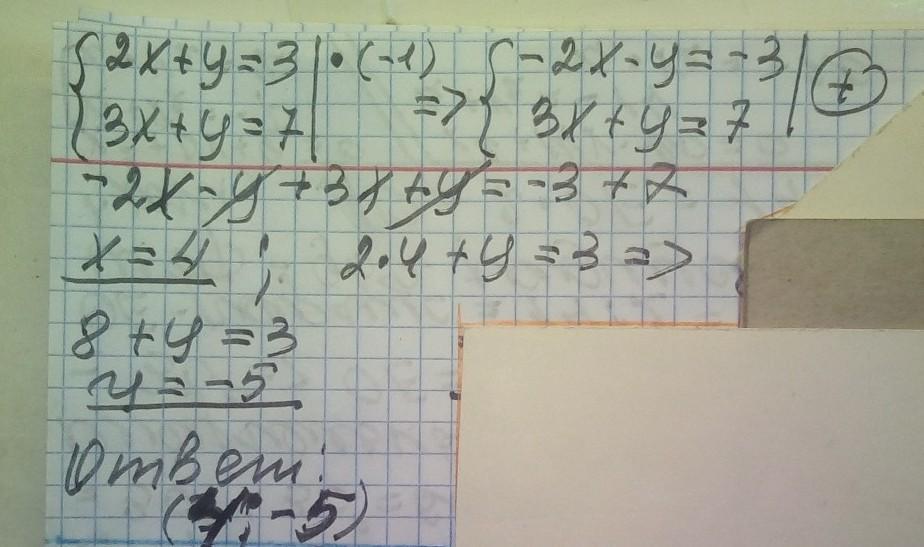 {2x+y=3 | •(-1) {-2x-y=-3 | +
{3x+y=7 | => {3x+y=7 |
-2x-y+3x+y=-3+7
x=4 ; 2•4+y=3=>
8+y=3
y=-5
Ответ:
( ; -5)